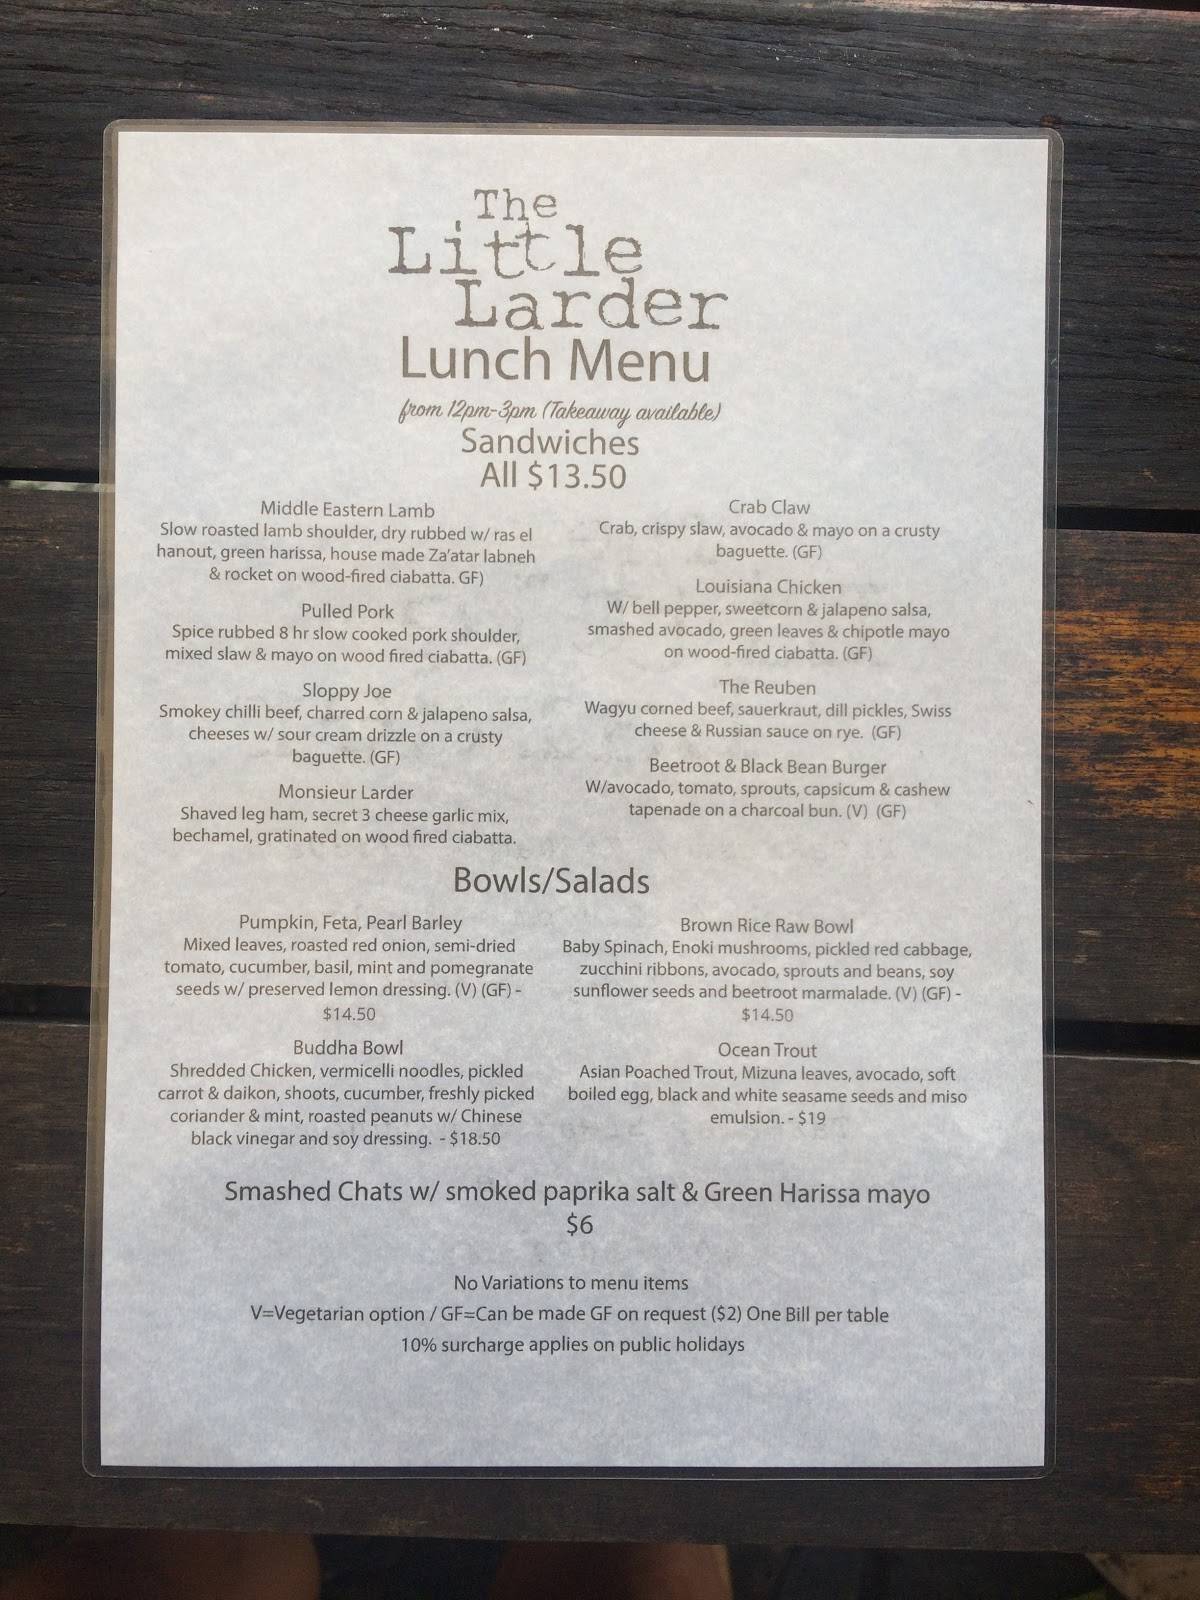 The
Little
Larder
Lunch Menu
from 12pm-3pm (Takeaway available)
Sandwiches
All $13.50
Middle Eastern Lamb
Slow roasted lamb shoulder, dry rubbed w/ ras el
hanout, green harissa, house made Za'atar labneh
& rocket on wood-fired ciabatta. GF)
Pulled Pork
Spice rubbed 8 hr slow cooked pork shoulder,
mixed slaw & mayo on wood fired ciabatta. (GF)
Sloppy Joe
Smokey chilli beef, charred corn & jalapeno salsa,
cheeses w/ sour cream drizzle on a crusty
baguette. (GF)
Monsieur Larder
Shaved leg ham, secret 3 cheese garlic mix,
bechamel, gratinated on wood fired ciabatta.
Crab Claw
Crab, crispy slaw, avocado & mayo on a crusty
baguette. (GF)
Louisiana Chicken
W/ bell pepper, sweetcorn & jalapeno salsa,
smashed avocado, green leaves & chipotle mayo
on wood-fired ciabatta. (GF)
The Reuben
Wagyu corned beef, sauerkraut, dill pickles, Swiss
cheese & Russian sauce on rye. (GF)
Beetroot & Black Bean Burger
W/avocado, tomato, sprouts, capsicum & cashew
tapenade on a charcoal bun. (V) (GF)
Bowls/Salads
Pumpkin, Feta, Pearl Barley
Mixed leaves, roasted red onion, semi-dried
tomato, cucumber, basil, mint and pomegranate
seeds w/ preserved lemon dressing. (V) (GF) -
$14.50
Buddha Bowl
Shredded Chicken, vermicelli noodles, pickled
carrot & daikon, shoots, cucumber, freshly picked
coriander & mint, roasted peanuts w/ Chinese
black vinegar and soy dressing. - $18.50
Brown Rice Raw Bowl
Baby Spinach, Enoki mushrooms, pickled red cabbage,
zucchini ribbons, avocado, sprouts and beans, soy
sunflower seeds and beetroot marmalade. (V) (GF) -
$14.50
Ocean Trout
Asian Poached Trout, Mizuna leaves, avocado, soft
boiled egg, black and white seasame seeds and miso
emulsion. - $19
Smashed Chats w/ smoked paprika salt & Green Harissa mayo
$6
No Variations to menu items
V=Vegetarian option / GF=Can be made GF on request ($2) One Bill per table
10% surcharge applies on public holidays